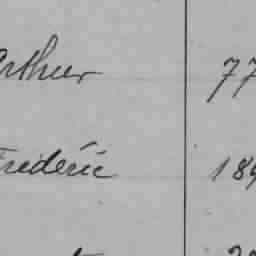 Arthur 77
Frédéric 189